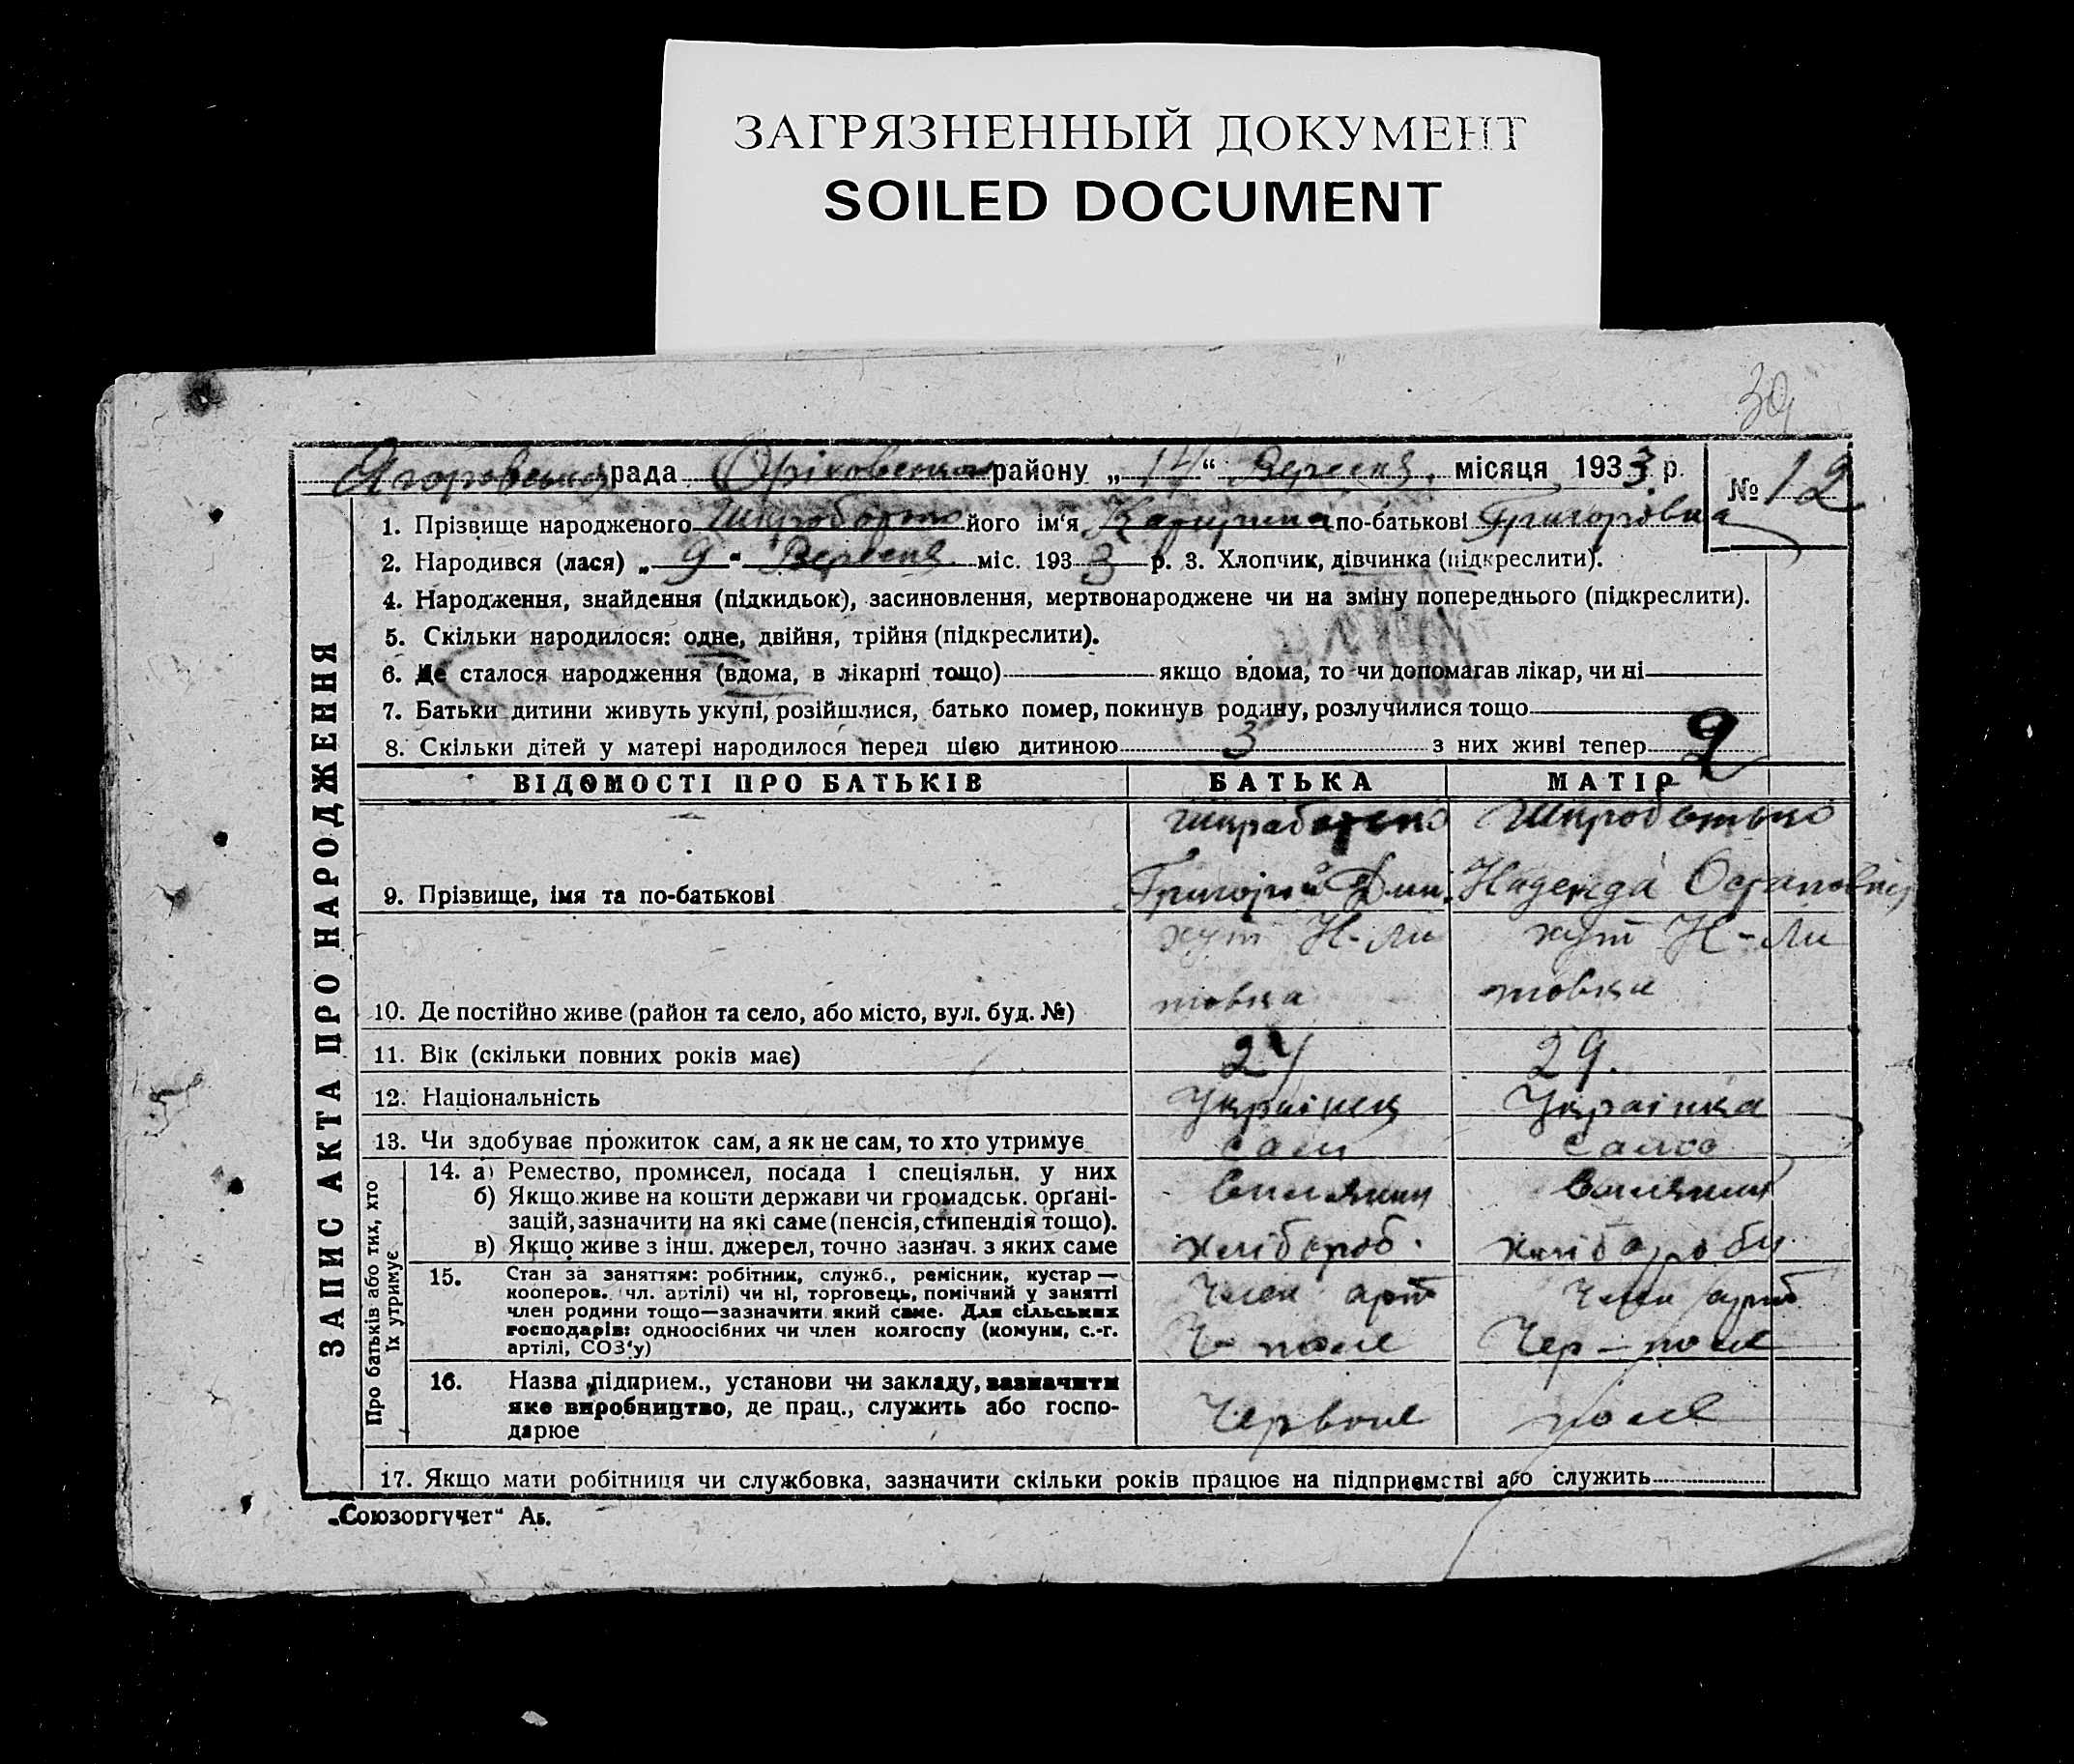 ЗАГРЯЗНЕННЫЙ ДОКУМЕНТ
SOILED DOCUMENT
39
Ягоровська рада Оріховського району „14“ Вересня місяця 1933 р.
№ 12
1. Прізвище народженого його ім'я по-батькові Григоровна
2. Народився (лася) „9“ Вересня міс. 1933 р. 3. Хлопчик, дівчинка (підкреслити).
4. Народження, знайдення (підкидьок), засиновлення, мертвонароджене чи на зміну попереднього (підкреслити).
5. Скільки народилося: одне, двійня, трійня (підкреслити).
6. Де сталося народження (вдома, в лікарні тощо) якщо вдома, то чи допомагав лікар, чи ні
7. Батьки дитини живуть укупі, розійшлися, батько помер, покинув родину, розлучилися тощо
8. Скільки дітей у матері народилося перед цією дитиною 3 з них живі тепер 2
ЗАПИС АКТА ПРО НАРОДЖЕННЯ
ВІДОМОСТІ ПРО БАТЬКІВ БАТЬКА МАТІР
Широботько
9. Прізвище, імя та по-батькові Григорій Дми. Надежда Остаповна
хут Н-Ли хут Н-Ли
10. Де постійно живе (район та село, або місто, вул. буд. №) товка товка
11. Вік (скільки повних років має) 24 29.
12. Національність Українец Українка
13. Чи здобуває прожиток сам, а як не сам, то хто утримує сам сама
Про батьків або тих, хто їх утримує
14. а) Ремество, промисел, посада і спеціяльн. у них
б) Якщо живе на кошти держави чи громадськ. орґані-
зацій, зазначити на які саме (пенсія, стипендія тощо).
в) Якщо живе з інш. джерел, точно зазнач. з яких саме хлібороб. хлібороби
15. Стан за заняттям: робітник, служб., ремісник, кустар —
кооперов. (чл. артілі) чи ні, торговець, помічний у занятті Член арт Член арт
член родини тощо—зазначити який саме. Для сільських
господарів: одноосібних чи член колгоспу (комуни, с.-г. Ч- поле Чер - поле
артілі, СОЗ'у)
16. Назва підприєм., установи чи закладу, зазначити
яке виробництво, де прац., служить або госпо- Червоне поле
дарює
17. Якщо мати робітниця чи службовка, зазначити скільки років працює на підприємстві або служить
„Союзоргучет“ Аб.